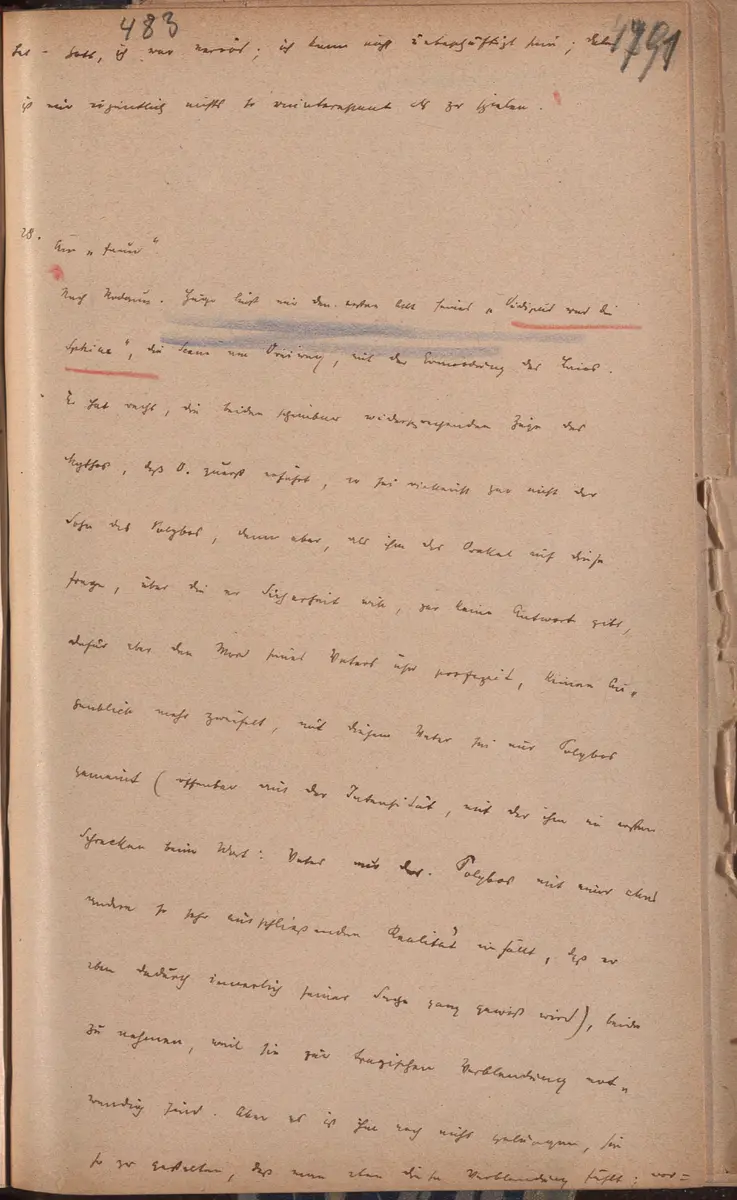 483
4791
hat, ich war nervös; ich kann nicht unbeschäftigt sein; dabei
ist mir eigentlich nichts so uninteressant als zu spielen.
28.
Am „Faun“.
Nach Rodaun. Hugo liest mir den ersten Akt seines „Oidipus und die
Sphinx“, die Scene am Dreiweg, mit der Ermordung des Laios.
Er hat recht, die beiden scheinbar widersprechenden Züge des
Mythos, daß O. zuerst erfährt, er sei vielleicht gar nicht der
Sohn des Polybos, dann aber, als ihm das Orakel auf diese
Frage, über die er Sicherheit will, gar keine Antwort gibt,
dafür aber den Mord seines Vaters ihm profezeit, keinen Au-
genblick mehr zweifelt, mit diesem Vater sei nur Polybos
gemeint (offenbar aus der Intensität, mit der ihm im ersten
Schrecken beim Wort: Vater nur der Polybos mit einer alles
andere so sehr ausschließenden Realität einfällt, daß er
eben dadurch innerlich seiner Sache ganz gewiß wird), beide
zu nehmen, weil sie zur tragischen Verblendung not-
wendig sind. Aber es ist ihm noch nicht gelungen, sie
so zu gestalten, daß man eben diese Verblendung fühlt: